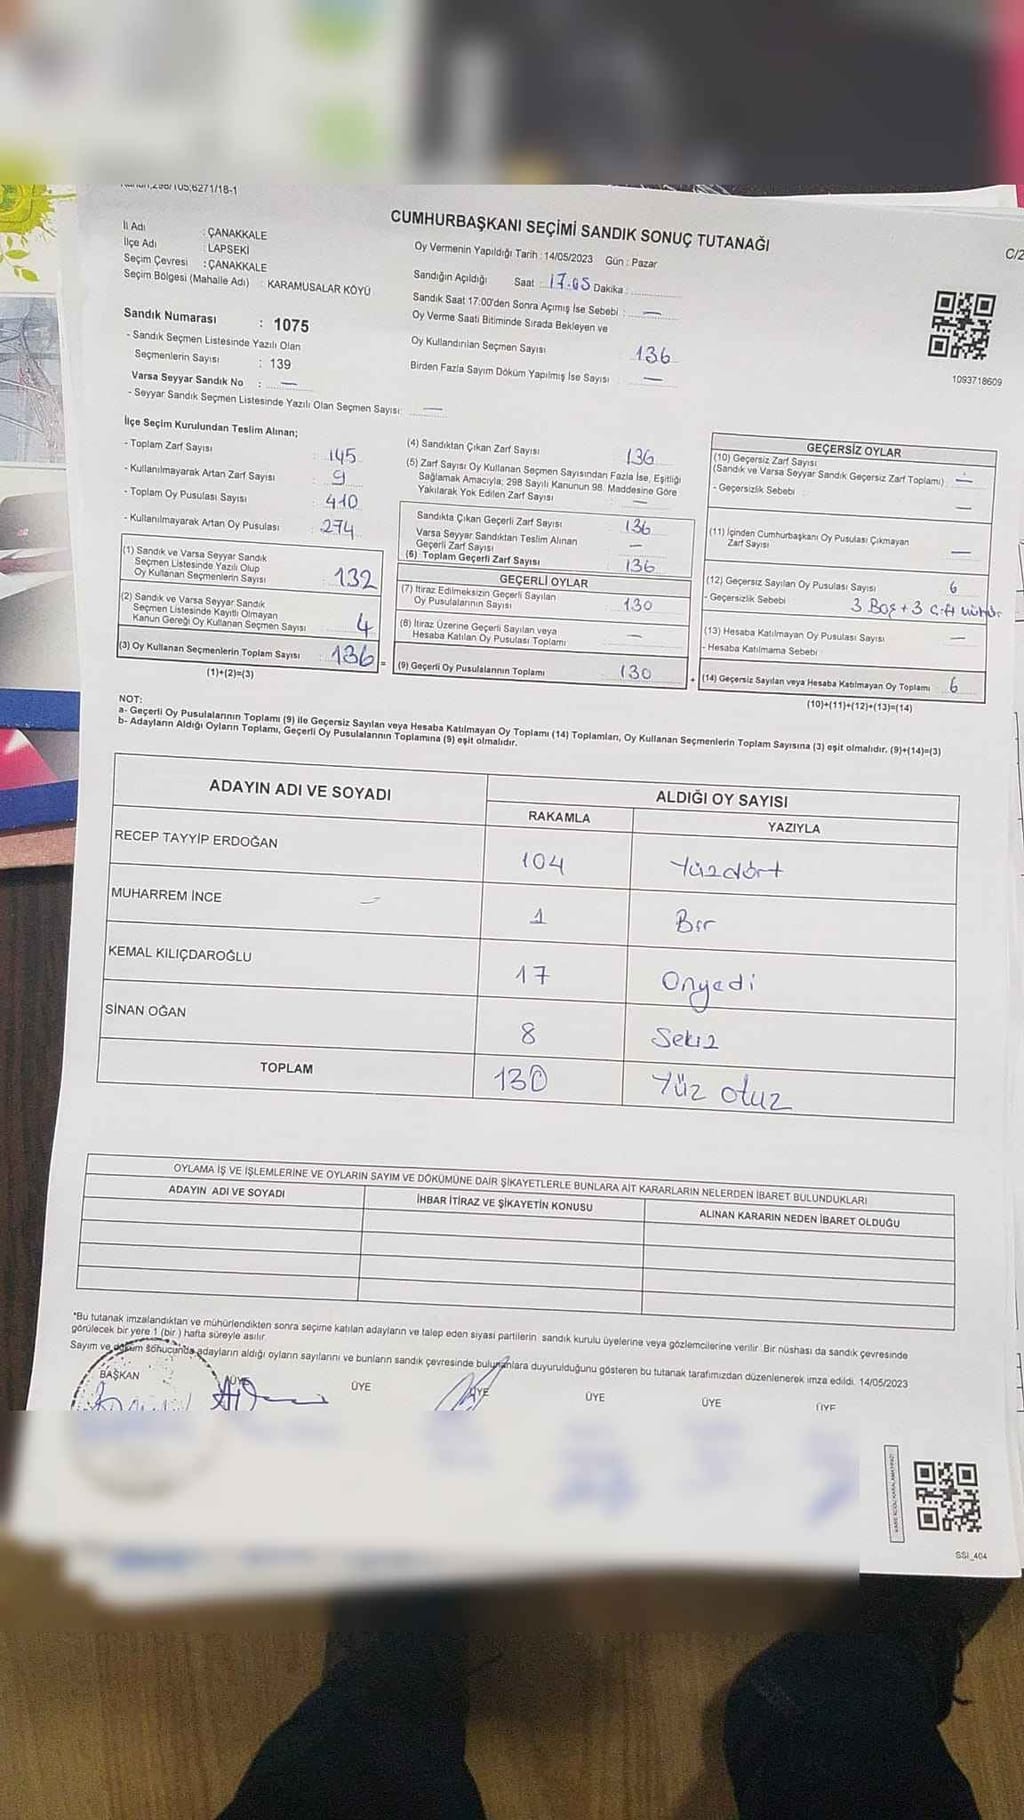 CUMHURBAŞKANI SEÇİMİ SANDIK SONUÇ TUTANAĞI
C/2
İl Adı : ÇANAKKALE
İlçe Adı : LAPSEKİ
Seçim Çevresi : ÇANAKKALE
Seçim Bölgesi (Mahalle Adı) : KARAMUSALAR KÖYÜ
Sandık Numarası : 1075
- Sandık Seçmen Listesinde Yazılı Olan
Seçmenlerin Sayısı : 139
Varsa Seyyar Sandık No : —
- Seyyar Sandık Seçmen Listesinde Yazılı Olan Seçmen Sayısı: —
Oy Vermenin Yapıldığı Tarih : 14/05/2023 Gün : Pazar
Sandığın Açıldığı Saat : 17.05 Dakika :
Sandık Saat 17:00'den Sonra Açımış İse Sebebi : —
Oy Verme Saati Bitiminde Sırada Bekleyen ve
Oy Kullandırılan Seçmen Sayısı 136
Birden Fazla Sayım Döküm Yapılmış İse Sayısı : —
1093718609
İlçe Seçim Kurulundan Teslim Alınan;
- Toplam Zarf Sayısı : 145
- Kullanılmayarak Artan Zarf Sayısı : 9
- Toplam Oy Pusulası Sayısı : 410
- Kullanılmayarak Artan Oy Pusulası : 274
(1) Sandık ve Varsa Seyyar Sandık
Seçmen Listesinde Yazılı Olup
Oy Kullanan Seçmenlerin Sayısı 132
(2) Sandık ve Varsa Seyyar Sandık
Seçmen Listesinde Kayıtlı Olmayan
Kanun Gereği Oy Kullanan Seçmen Sayısı 4
(3) Oy Kullanan Seçmenlerin Toplam Sayısı 136 =
(1)+(2)=(3)
(4) Sandıktan Çıkan Zarf Sayısı 136
(5) Zarf Sayısı Oy Kullanan Seçmen Sayısından Fazla İse, Eşitliği
Sağlamak Amacıyla; 298 Sayılı Kanunun 98. Maddesine Göre
Yakılarak Yok Edilen Zarf Sayısı —
Sandıkta Çıkan Geçerli Zarf Sayısı 136
Varsa Seyyar Sandıktan Teslim Alınan
Geçerli Zarf Sayısı —
(6) Toplam Geçerli Zarf Sayısı 136
GEÇERLİ OYLAR
(7) İtiraz Edilmeksizin Geçerli Sayılan
Oy Pusulalarının Sayısı 130
(8) İtiraz Üzerine Geçerli Sayılan veya
Hesaba Katılan Oy Pusulası Toplamı —
(9) Geçerli Oy Pusulalarının Toplamı 130 +
GEÇERSİZ OYLAR
(10) Geçersiz Zarf Sayısı
(Sandık ve Varsa Seyyar Sandık Geçersiz Zarf Toplamı) —
- Geçersizlik Sebebi : —
(11) İçinden Cumhurbaşkanı Oy Pusulası Çıkmayan
Zarf Sayısı —
(12) Geçersiz Sayılan Oy Pusulası Sayısı 6
- Geçersizlik Sebebi 3 Boş + 3 Çift
(13) Hesaba Katılmayan Oy Pusulası Sayısı —
- Hesaba Katılmama Sebebi :
(14) Geçersiz Sayılan veya Hesaba Katılmayan Oy Toplamı 6
(10)+(11)+(12)+(13)=(14)
NOT:
a- Geçerli Oy Pusulalarının Toplamı (9) ile Geçersiz Sayılan veya Hesaba Katılmayan Oy Toplamı (14) Toplamları, Oy Kullanan Seçmenlerin Toplam Sayısına (3) eşit olmalıdır. (9)+(14)=(3)
b- Adayların Aldığı Oyların Toplamı, Geçerli Oy Pusulalarının Toplamına (9) eşit olmalıdır.
ADAYIN ADI VE SOYADI ALDIĞI OY SAYISI
RAKAMLA YAZIYLA
RECEP TAYYİP ERDOĞAN 104 Yüzdört
MUHARREM İNCE 1 Bir
KEMAL KILIÇDAROĞLU 17 Onyedi
SİNAN OĞAN 8 Sekiz
TOPLAM 130 Yüz otuz
OYLAMA İŞ VE İŞLEMLERİNE VE OYLARIN SAYIM VE DÖKÜMÜNE DAİR ŞİKAYETLERLE BUNLARA AİT KARARLARIN NELERDEN İBARET BULUNDUKLARI
ADAYIN ADI VE SOYADI İHBAR İTİRAZ VE ŞİKAYETİN KONUSU ALINAN KARARIN NEDEN İBARET OLDUĞU
*Bu tutanak imzalandıktan ve mühürlendikten sonra seçime katılan adayların ve talep eden siyasi partilerin sandık kurulu üyelerine veya gözlemcilerine verilir. Bir nüshası da sandık çevresinde
görülecek bir yere 1 (bir ) hafta süreyle asılır.
Sayım ve döküm sonucunda adayların aldığı oyların sayılarını ve bunların sandık çevresinde bulunanlara duyurulduğunu gösteren bu tutanak tarafımızdan düzenlenerek imza edildi. 14/05/2023
BAŞKAN ÜYE ÜYE ÜYE ÜYE ÜYE ÜYE
SSI_404